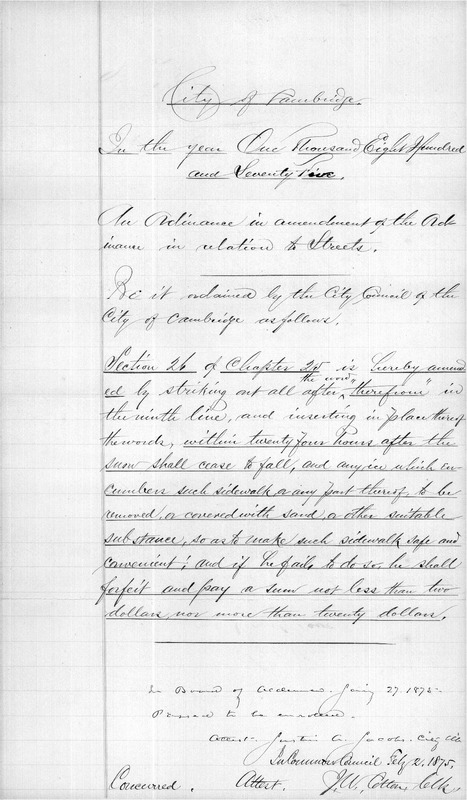 City of Cambridge.
In the year One Thousand Eight Hundred
and Seventy Five.
An Ordinance in amendment of the Ord-
inance in relation to Streets.
Be it ordained by the City Council of the
City of Cambridge as follows.
Section 26 of Chapter 25 is hereby amend-
ed by striking out all after the word "therefrom" in
the ninth line, and inserting in place thereof
the words, within twenty four hours after the
snow shall cease to fall, and any ice which en-
cumbers such sidewalk or any part thereof, to be
removed, or covered with sand, or other suitable
substance, so as to make such sidewalk safe and
convenient; and if he fails to do so, he shall
forfeit and pay a sum not less than two
dollars, nor more than twenty dollars.
In Board of Aldermen. Jany 27. 1875.
Passed to be enrolled.
Attest. Justin A. Jacobs. City Clk
In Common Council Feby 2, 1875.
Concurred. Attest. J. W. Cotton Clk.